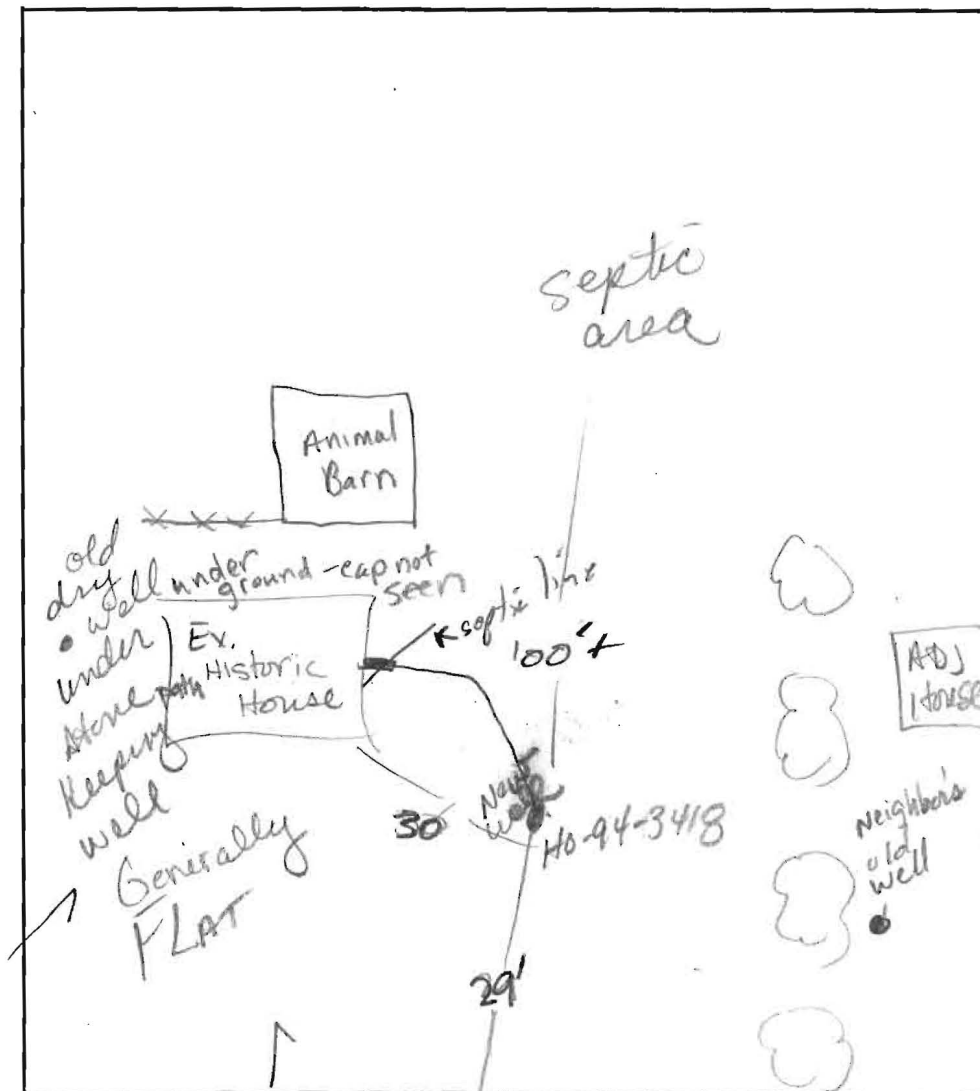 septic
area
Animal
Barn
old
dry
well under
ground - cap not
seen
under
stone path
Keeping
well
Ex.
Historic
House
septic line
100'+
ADJ
House
New
30
HO-94-3418
Neighbor's
old
well
Generally
FLAT
29'